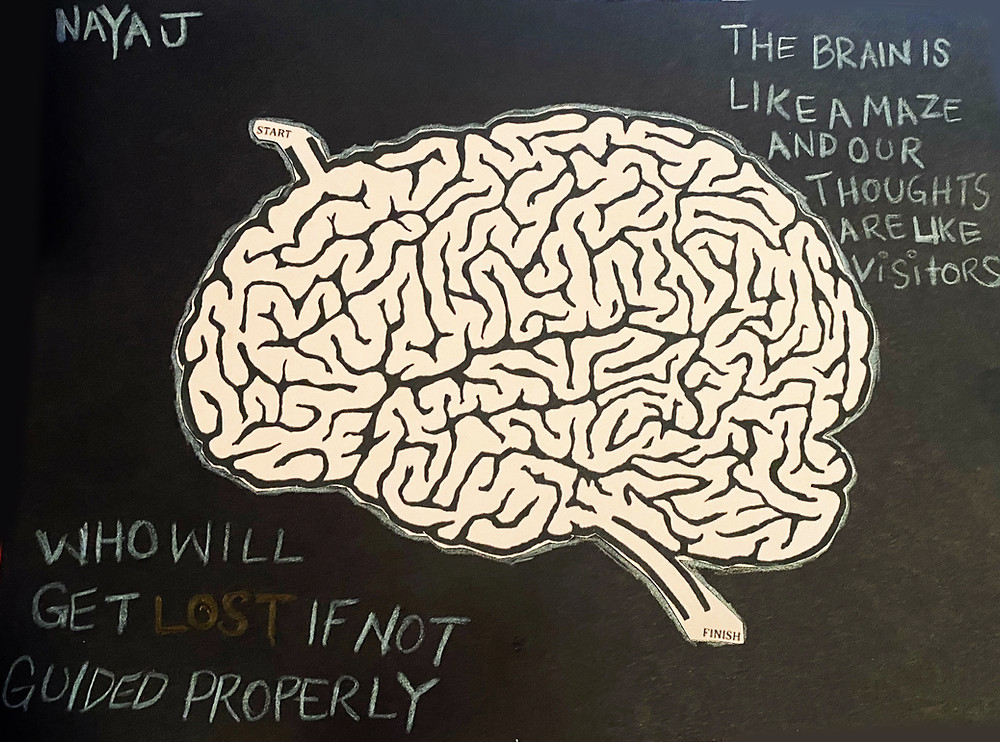 NAYA J
THE BRAIN IS
LIKE A MAZE
AND OUR
THOUGHTS
ARE LIKE
VISITORS
START
FINISH
WHO WILL
GET LOST IF NOT
GUIDED PROPERLY